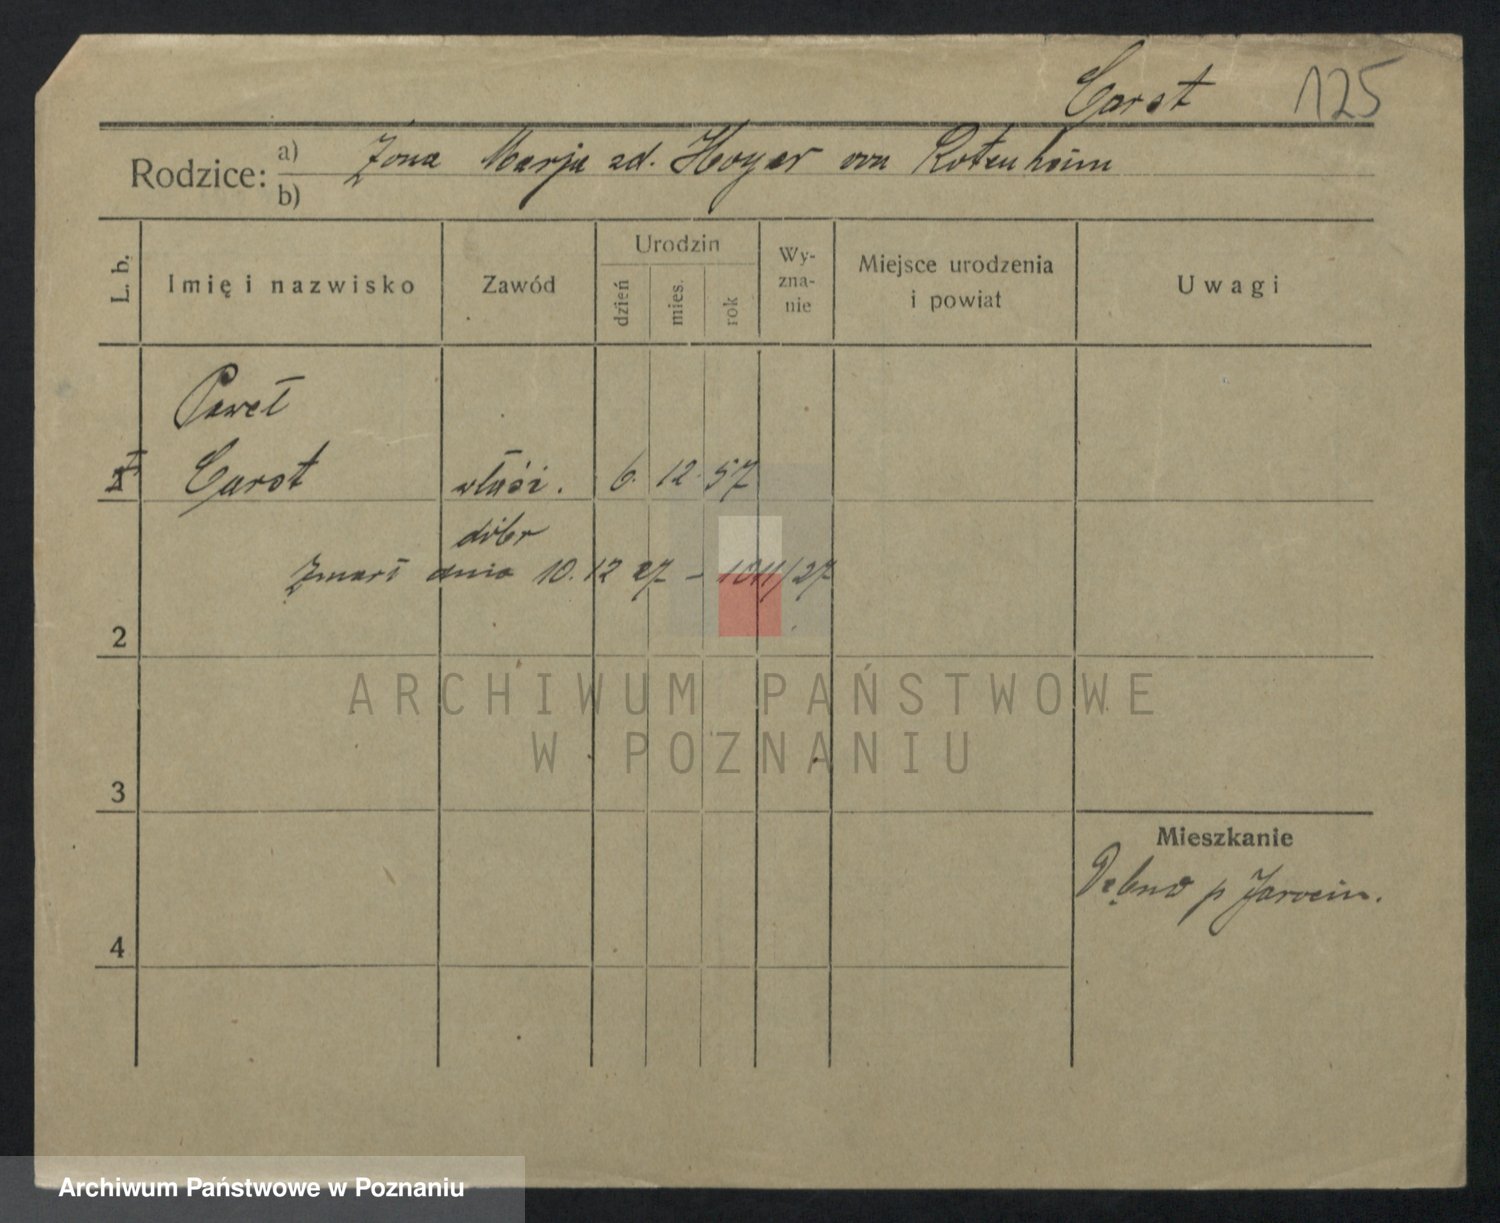 Carst 125
Rodzice: a) b)
Żona Marja zd. Hoyer von Rotenheim
L. b. Imię i nazwisko Zawód Urodzin dzień mies. rok Wy-zna-nie Miejsce urodzenia i powiat Uwagi
Paweł
1 Carst właśi. 6. 12. 57
dóbr
Zmarł dnia 10. 12 27 - 1011/27
2
ARCHIWUM PAŃSTWOWE
W POZNANIU
3
Mieszkanie
p Jarocin.
4
Archiwum Państwowe w Poznaniu